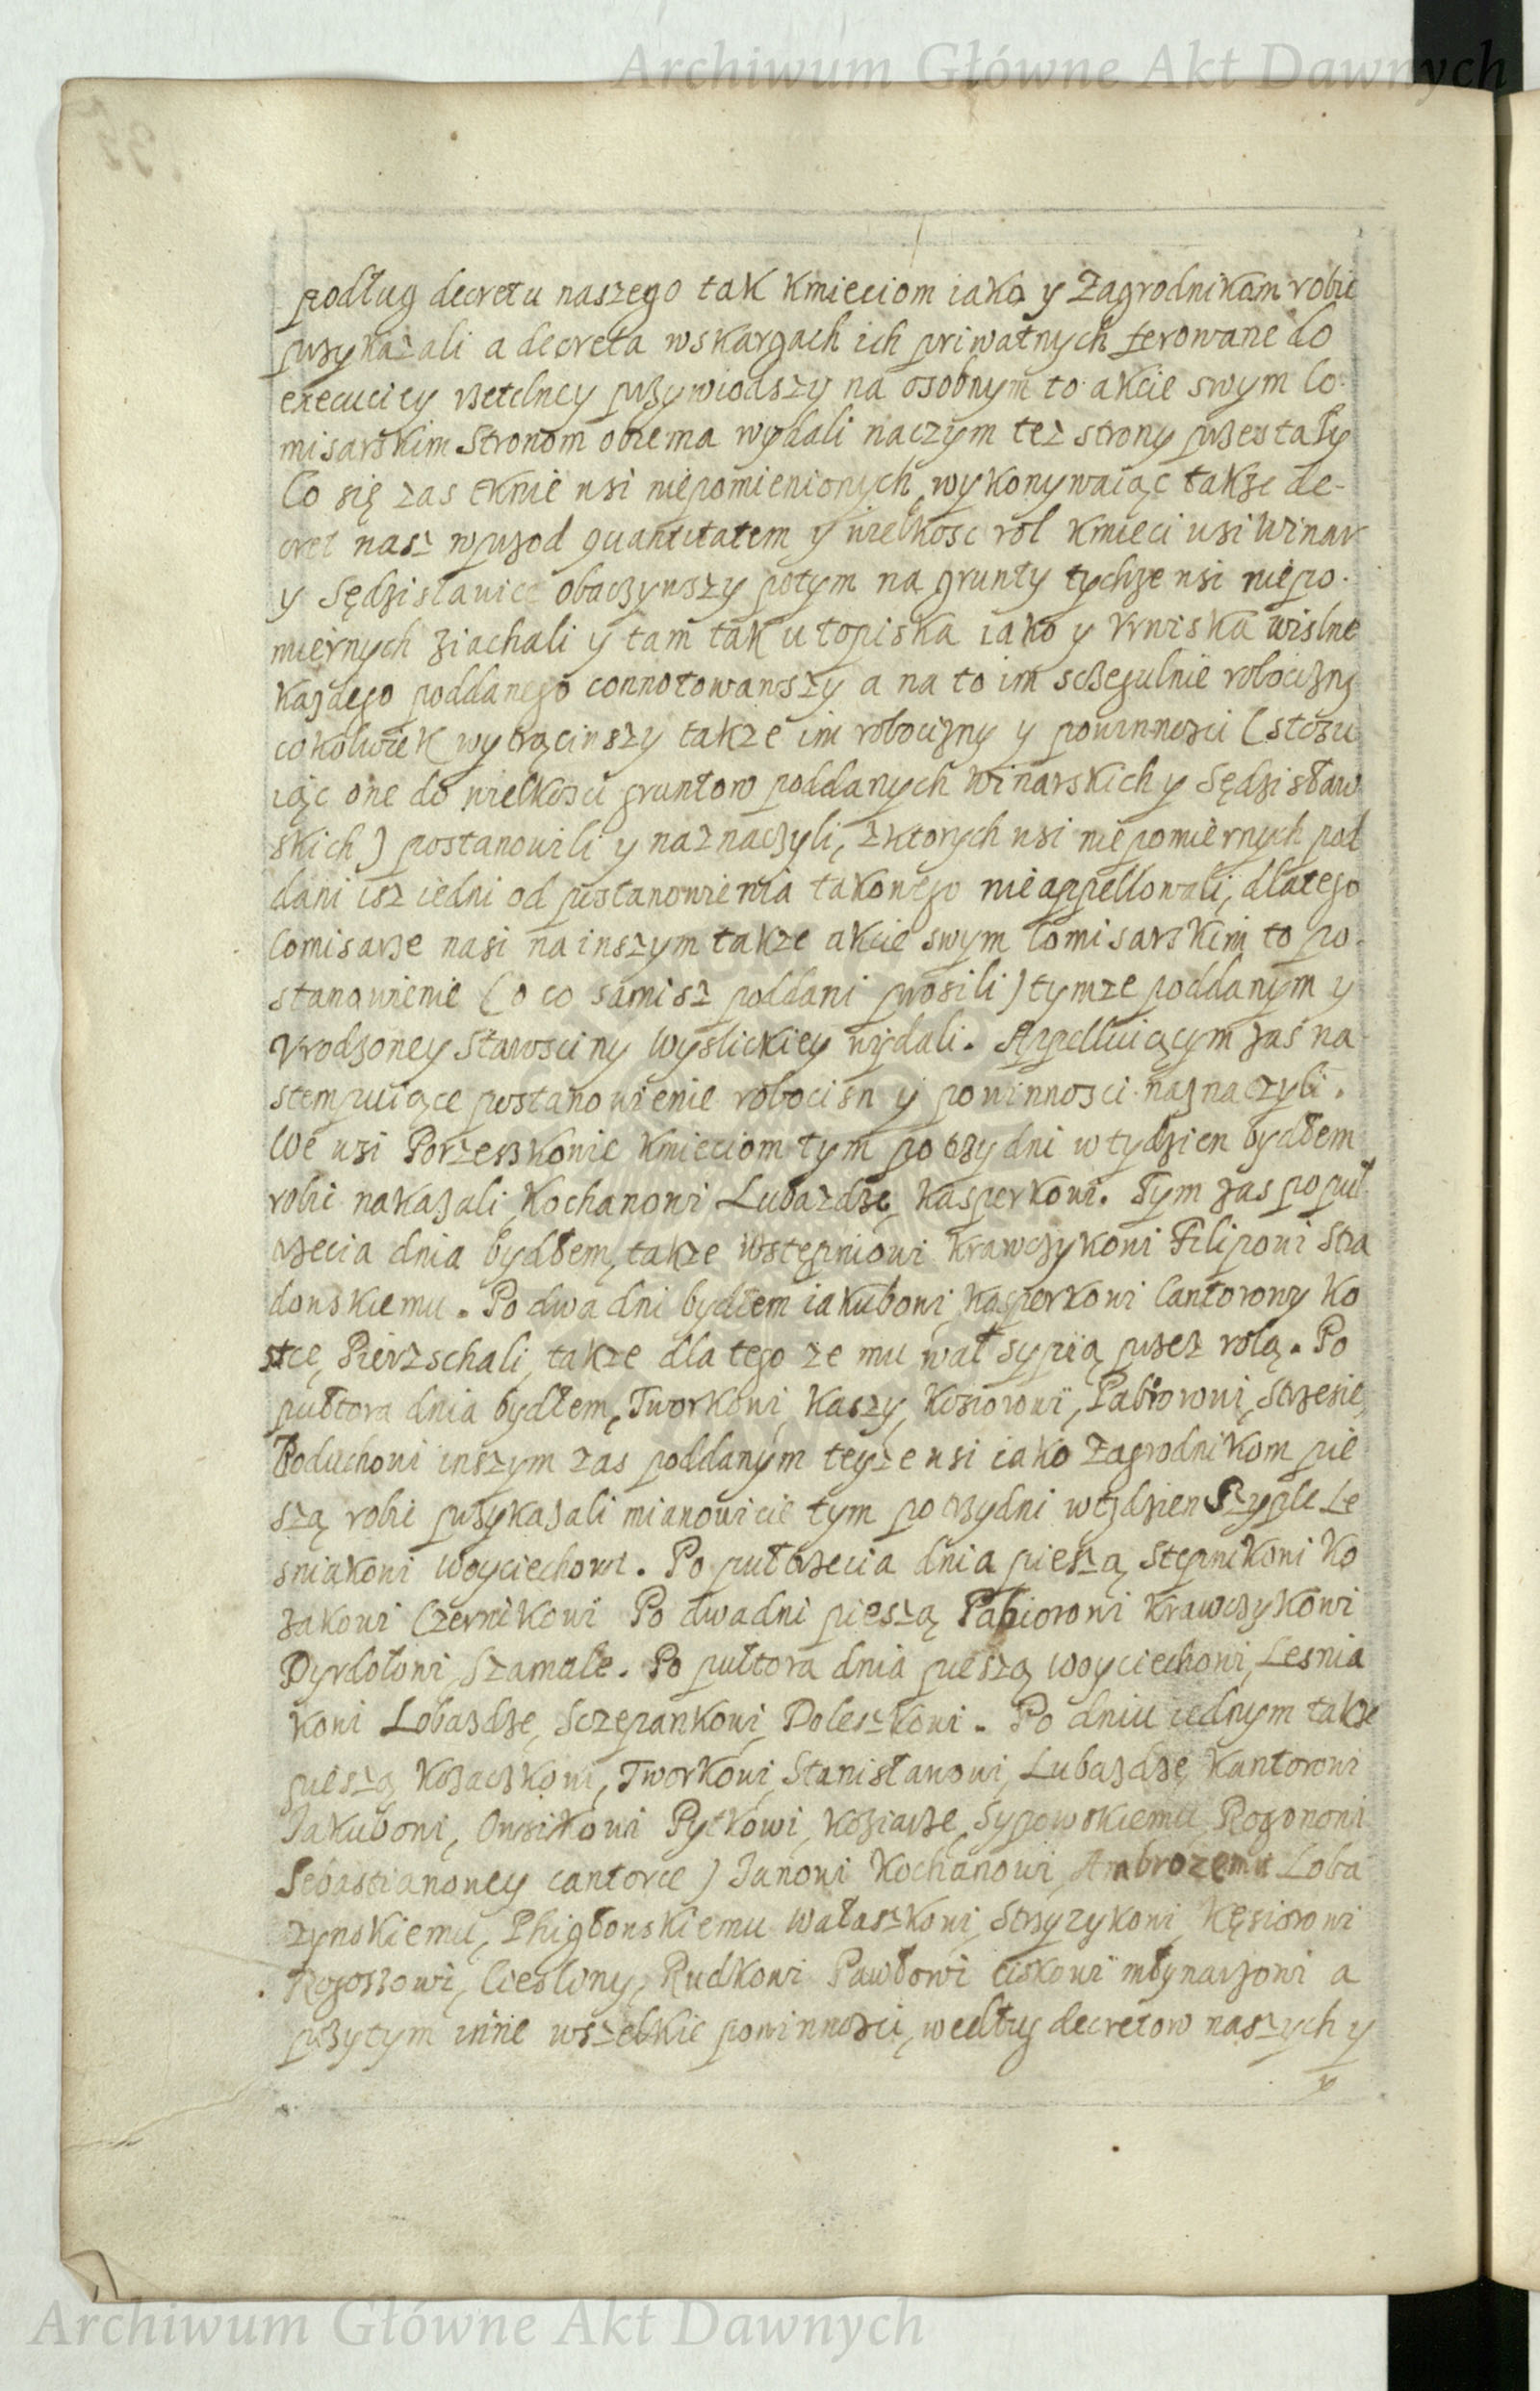 Archiwum Główne Akt Dawnych
podług decretu naszego tak kmieciom iako y Zagrodnikom robic
przykazali a decreta wskargach ich priwatnych ferowane do
execuciey rzetelney przywiodszy na osobnym to akcie swym Co-
misarskim Stronom obiema wydali naczym tez strony przestały
Co się zas tknie wsi niepomienionych, wykonywaiąc takze de-
cret nasz wprzod quantitatem y wielkosc rol kmieci wsi Winar
y Sędzisławice obaczywszy potym na grunty tychze wsi niepo-
miernych ziachali y tam tak utopiska iako y Vrwiska wislne
kazdego poddanego connotowawszy a na to im sczegulnie robocizny
cokolwiek wytrąciwszy takze im robocizny y powinnosci (stosu
iąc one do wielkosci gruntow poddanych Winarskich y Sędzisław
skich) postanowili y naznaczyli, zktorych wsi niepomiernych pod
dani isz iedni od postanowienia takowego nieappellowali, dlatego
Comisarze nasi nainszym takze akcie swym Comisarskim to po-
stanowienie (o co sami sz poddani prosili) tymze poddanym y
Vrodzoney Starosciny Wyslickiey wydali. Appelluiącym zas na-
stempuiące postanowienie robocisn y powinnosci naznaczyli.
We wsi Porzeszkowie kmieciom tym po trzy dni w tydzien bydłem
robic nakazali, Kochanowi Lubazdze, Kasperkowi. Tym zas po puł
trzecia dnia bydłem, takze Wstępniowi Krawczykowi Filipowi Stra
donskiemu. Po dwa dni bydłem iakubowi, Kasperkowi Cantorowy Ko
stce, Pierzschali, takze dla tego ze mu wał sypią przez rolą. Po
pułtora dnia bydłem, Tworkowi Kaszy, Koziorowi, Pabiorowi, Strzesie,
Poduchowi inszym zas poddanym teyze wsi iako Zagrodnikom pie
szą robic przykazali mianowicie tym po trzydni wtydzien Szyple Le
sniakowi Woyciechowi. Po puł trzecia dnia pieszą Stępnikowi Ko
zakowi Czernikowi Po dwadni pieszą Pabiorowi Krawczykowi
Dyrdołowi, Szamale. Po pułtora dnia pieszą Woyciechowi, Lesnia
kowi Lobazdze, Sczepankowi, Doleszkowi. Po dniu iednym takze
pieszą Kozaczkowi, Tworkowi, Stanisławowi, Lubazdze, Kantorowi
Jakubowi, Owsikowi Pytkowi, Koziarze, Sypowskiemu, Rogonowi
Sebastianowey cantorce) Janowi Kochanowi, Ambrozemu Loba
zynskiemu, Phigłowskiemu Wałaszkowi, Strzyzykowi, Kęsiorowi
Rogoszowi, Cieslowy, Rudkowi Pawłowi ciskowi młynarzowi a
przytym inne wszelkie powinnosci, według decretow naszych y
y
Archiwum Główne Akt Dawnych